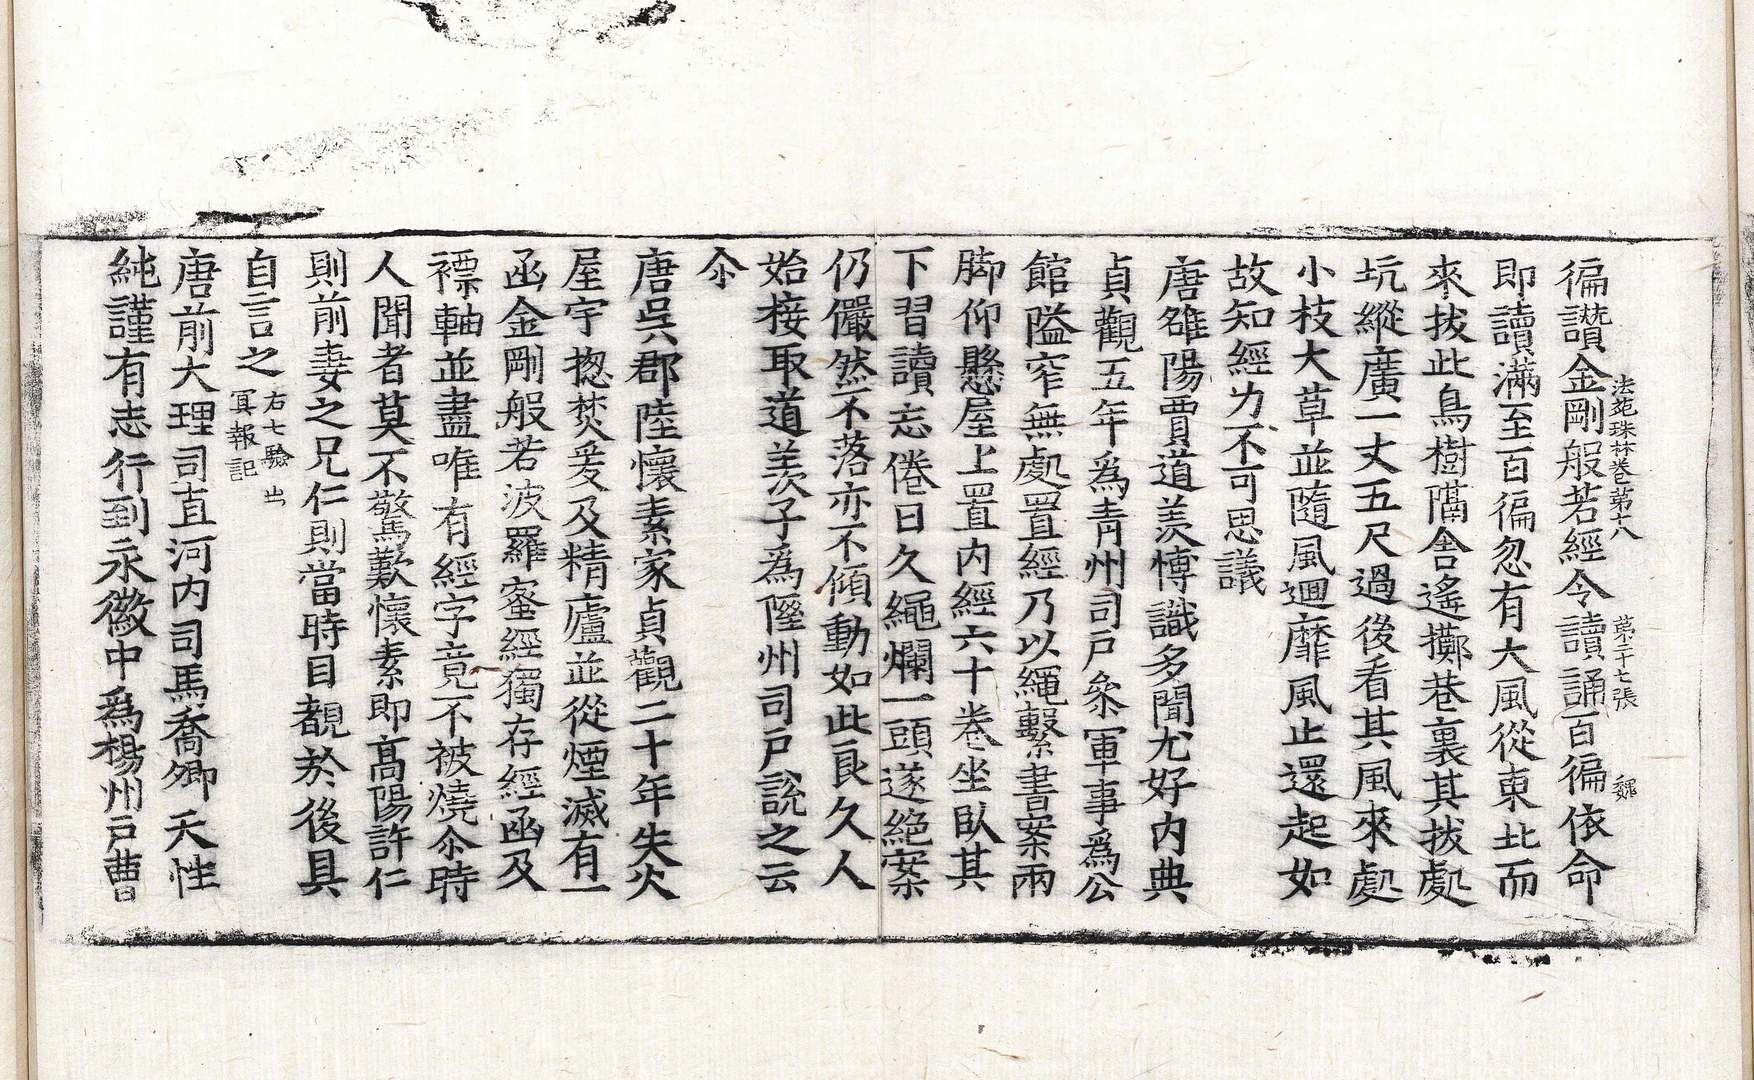 法苑珠林卷第十八 苐二十七張 魏
徧讚金剛般若經令讀誦百徧依命
即讀滿至百徧忽有大風從東北而
來拔此鳥樹隔舍遙擲巷裏其拔處
坑縱廣一丈五尺過後看其風來處
小枝大草並隨風迴靡風止還起如
故知經力不可思議
唐雒陽賈道羨博識多聞尤好內典
貞觀五年爲青州司戶叅軍事爲公
館隘窄無處置經乃以繩繫書案兩
脚仰懸屋上置內經六十卷坐臥其
下習讀忘倦日久繩爛一頭遂絕案
仍儼然不落亦不傾動如此良久人
始接取道羨子爲隰州司戶說之云
尒
唐吳郡陸懷素家貞觀二十年失火
屋宇揔焚爰及精廬並從煙滅有一
函金剛般若波羅蜜經獨存經函及
褾軸並盡唯有經字竟不被燒尒時
人聞者莫不驚歎懷素即高陽許仁
則前妻之兄仁則當時目覩於後具
自言之 右七驗出
冥報記
唐前大理司直河內司馬喬卿天性
純謹有志行到永徽中爲楊州戶曹